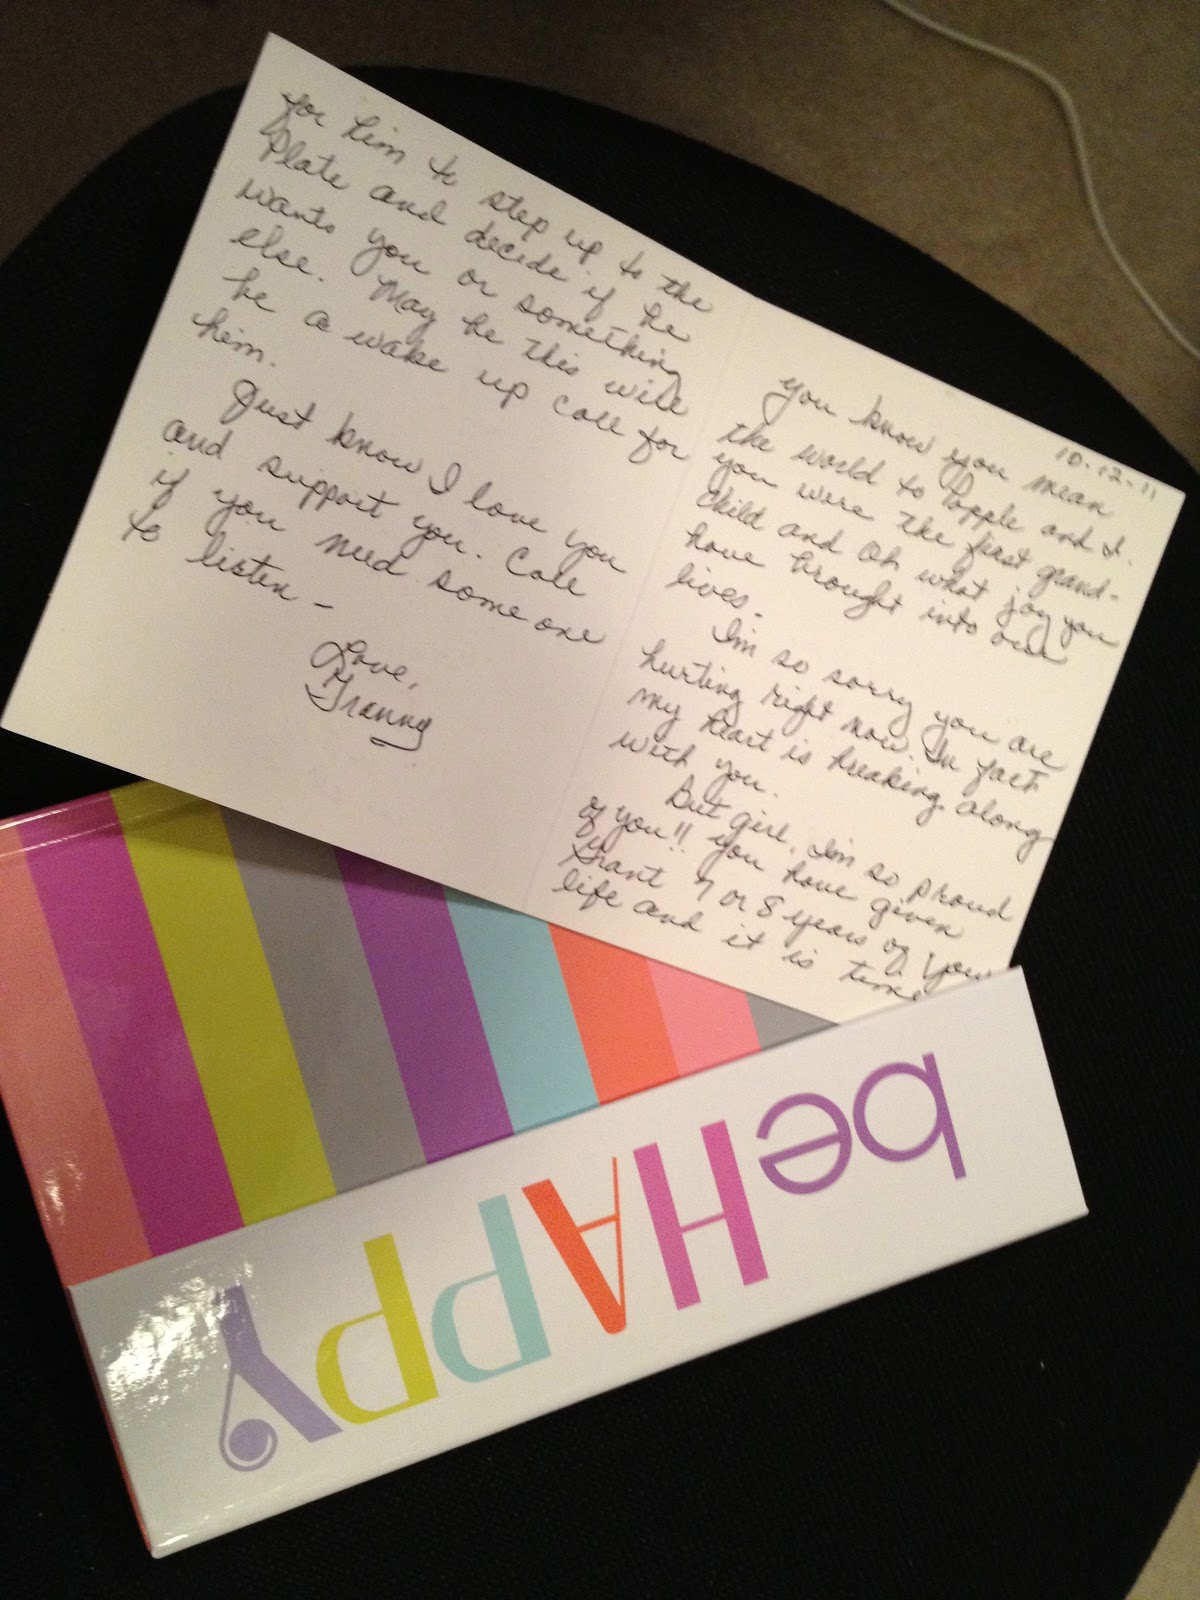 10-12-11
you know you mean
the world to Popple and I.
you were the first grand-
child and Oh what joy you
have brought into our
lives.
I'm so sorry you are
hurting right now. In fact
my heart is breaking along
with you.
But girl, I'm so proud
of you!! you have given
Grant 7 or 8 years of your
life and it is time
for him to step up to the
Plate and decide if he
wants you or something
else. May be this will
be a wake up call for
him.
Just know I love you
and support you. Call
if you need some one
to listen -
Love,
Granny
be HAPPY